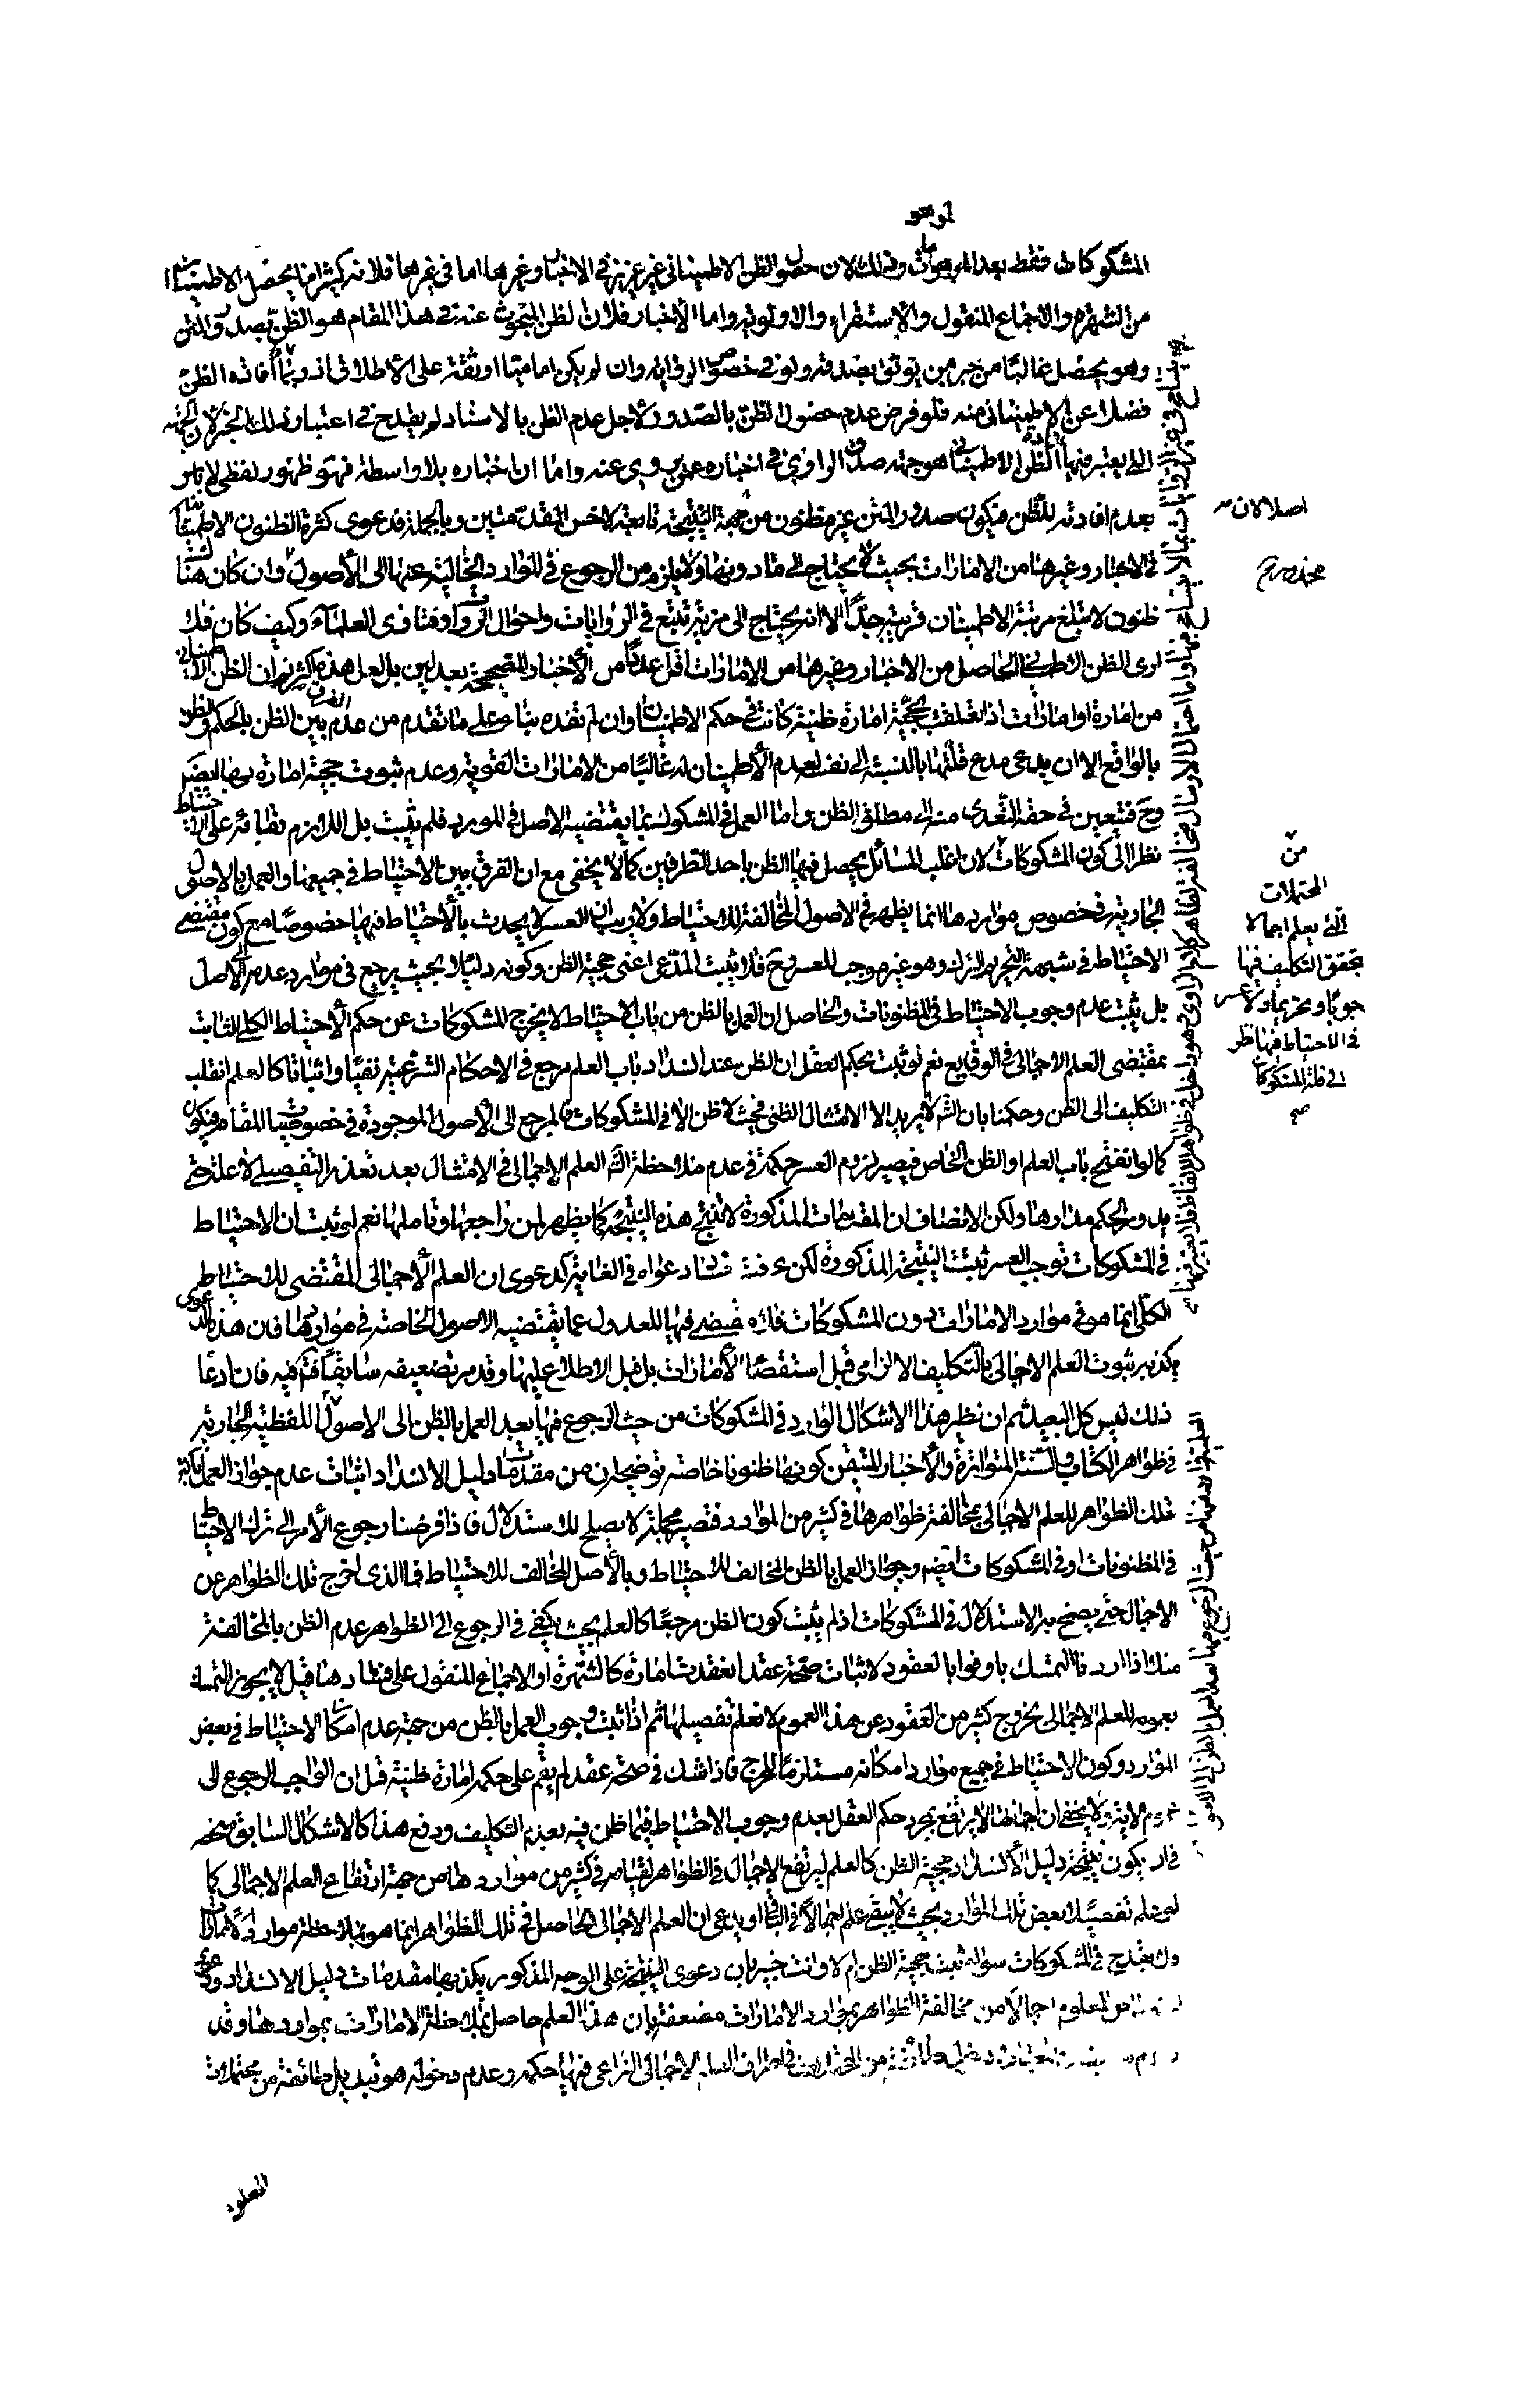 المشكوكات فقط بعد الموهومات وذلك لان حصول الظن الاطميناني غير عزيز في الاخبار وغيرها اما في غيرها فلانه كثيرا ما يحصل الاطمينان
من الشهرة والاجماع المنقول والاستقراء والاولوية واما الاخبار فلان الظن المبحوث عنه في هذا المقام هو الظن بصدور المتن
وهو يحصل غالبا من خبر من يوثق بصدقه ولو في خصوص الرواية وان لم يكن اماميا او ثقة على الاطلاق اذ ربما
فضلا عن الاطميناني منه فلو فرض عدم حصول الظن بالصدور لاجل عدم الظن بالاسناد لم يقدح في اعتبار ذلك الخبر لان الجهة
التي يعتبر فيها افادة الظن الاطميناني هو جهة صدق الراوي في اخباره عمن يروي عنه واما ان اخباره بلا واسطة فهو ظهور لفظي لا باس
بعدم افادته للظن فيكون صدور المتن غير مظنون من جهة النتيجة تابعة لاخس المقدمتين وبالجملة فدعوى كثرة الظنون الاطمينانية
في الاخبار وغيرها من الامارات بحيث لا يحتاج الى ما دونها ولا يلزم من الرجوع في الموارد الخالية عنها الى الاصول وان كان هناك
ظنون لا تبلغ مرتبة الاطمينان قريبة جدا الا انه يحتاج الى مزيد تتبع في الروايات واحوال الرواة وفتاوى العلماء وكيف كان فلا
ارى الظن الاطميناني الحاصل من الاخبار وغيرها من الامارات اقل عددا من الاخبار المصححة بعدلين بل لعل هذا اكثر ثم ان الظن الاطميناني
من امارة او امارات اذا تعلقت بحجية امارة ظنية كانت في حكم الاطمينان وان لم تفده بناء على ما تقدم من عدم الفرق بين الظن بالحكم والظن
بالواقع الا ان يدعي مدع قلتها بالنسبة الى نفسه لعدم الاطمينان له غالبا من الامارات القوية وعدم ثبوت حجية امارة بها ايضا
وح فتيعين في حقه التعدي منه الى مطلق الظن واما العمل في المشكوك بما يقتضيه الاصل في المورد فلم يثبت بل اللازم بقائه على الاحتياط
نظرا الى كون المشكوكات من لان اغلب المسائل يحصل فيها الظن باحد الطرفين كما لا يخفى مع ان الفرق بين الاحتياط في جميعها والعمل بالاصول
الجارية في خصوص مواردها انما يظهر في الاصول المخالفة للاحتياط ولا ريب ان العسر لا يحدث بالاحتياط فيها خصوصا مع كون مقتضى
الاحتياط في شبهة التحريم الترك وهو غير موجب للعسر وح فلا يثبت المدعى اعني حجية الظن وكونه دليلا بحيث يرجع في موارد عدمه الى الاصل
بل يثبت عدم وجوب الاحتياط في المظنونات والحاصل ان العمل بالظن من باب الاحتياط لا يخرج المشكوكات عن حكم الاحتياط الكلي الثابت
بمقتضى العلم الاجمالي في الوقايع نعم لو ثبت بحكم العقل ان الظن عند انسداد باب العلم مرجع في الاحكام الشرعية نفيا واثباتا كالعلم انقلب
التكليف الى الظن وحكمنا بان الشارع لا يريد الا الامتثال الظني فحيث لا ظن كما في المشكوكات فالمرجع الى الاصول الموجودة في خصوصيات المقام فيكون
كما لو انفتح باب العلم او الظن الخاص فيصير لزوم العسر حكمة في عدم ملاحظة الشارع العلم الاجمالي في الامتثال بعد تعذر التفصيلي لا علة حتى
يدور الحكم مدارها ولكن الانصاف ان المقدمات المذكورة لا تنتج هذه النتيجة كما يظهر لمن راجعها وتأملها نعم لو ثبت ان الاحتياط
في المشكوكات توجب العسر ثبتت النتيجة المذكورة لكن عرفت فساد دعواه في الغاية كدعوى ان العلم الاجمالي المقتضي للاحتياط
الكلي انما هو في موارد الامارات دون المشكوكات فلا مقتضي فيها للعدول عما تقتضيه الاصول الخاصة في مواردها فان هذه الدعوى
يكذبه ثبوت العلم الاجمالي بالتكليف الالزامي قبل استقصاء الامارات بل قبل الاطلاع عليها وقد مر تضعيفه سابقا فتأمل فيه فان ادعاء
ذلك ليس كل البعيد ثم ان نظير هذا الاشكال الوارد في المشكوكات من حيث الرجوع فيها بعد العمل بالظن الى الاصول اللفظية الجارية
في ظواهر الكتاب والسنة المتواترة والاخبار المتيقن كونها ظنونا خاصة توضيحه ان من مقدمات دليل الانسداد اثبات عدم جواز العمل باكثر
تلك الظواهر للعلم الاجمالي بمخالفة ظواهرها في كثير من الموارد فتصير مجملة لا يصلح للاستدلال فاذا فرضنا رجوع الامر الى ترك الاحتياط
في المظنونات او في المشكوكات ايضا وجواز العمل بالظن المخالف للاحتياط وبالاصل المخالف للاحتياط فما الذي اخرج تلك الظواهر عن
الاجمال حتى يصح به الاستدلال في المشكوكات اذ لم يثبت كون الظن مرجعا كالعلم بحيث يكفي في الرجوع الى الظواهر عدم الظن بالمخالفة
مثلا اذا اردنا التمسك باوفوا بالعقود لاثبات صحة عقد انعقدت امارة كالشهرة او الاجماع المنقول على فساده قيل لا يجوز التمسك
بعمومه للعلم الاجمالي بخروج كثير من العقود عن هذا العموم لا نعلم تفصيلها ثم اذا ثبت وجوب العمل بالظن من جهة عدم امكان الاحتياط في بعض
الموارد وكون الاحتياط في جميع موارد امكانه مستلزما للحرج فاذا شك في صحة عقد لم يقم على حكمه امارة ظنية قيل ان الواجب الرجوع الى
عموم الاية ولا يخفى ان اجمالها لا يرتفع بمجرد حكم العقل بعدم وجوب الاحتياط فيما ظن فيه بعدم التكليف ودفع هذا كالاشكال السابق منحصر
في ان يكون نتيجة دليل الانسداد حجية الظن كالعلم ليرتفع الاجمال في الظواهر لقيامه في كثير من مواردها من جهة ارتفاع العلم الاجمالي كما
لو علم تفصيلا بعض تلك الموارد بحيث لا يبقى علم اجمالا في الباقي او يدعى ان العلم الاجمالي الحاصل في تلك الظواهر انما هو بملاحظة موارد الامارات
فلا يقدح في المشكوكات سواء ثبت حجية الظن ام لا وانت خبير بان دعوى النتيجة على الوجه المذكور يكذبها مقدمات دليل الانسداد ودعوى
اختصاص المعلوم اجمالا من مخالفة الظواهر بموارد الامارات مضعفة بان هذا العلم حاصل بملاحظة الامارات بمواردها وقد
من المحتملات في اطراف العلم الاجمالي الذي يراعى فيها حكمه وعدم دخوله هو تبديل طائفة من محتملات
المعلوم
اصلا لان
من
المحتملات
التي يعلم اجمالا
بتحقق التكليف فيها
وجوبا وتحريما ولا عسر
في الاحتياط فيها نظرا
الى قلة المشكوكات
صح